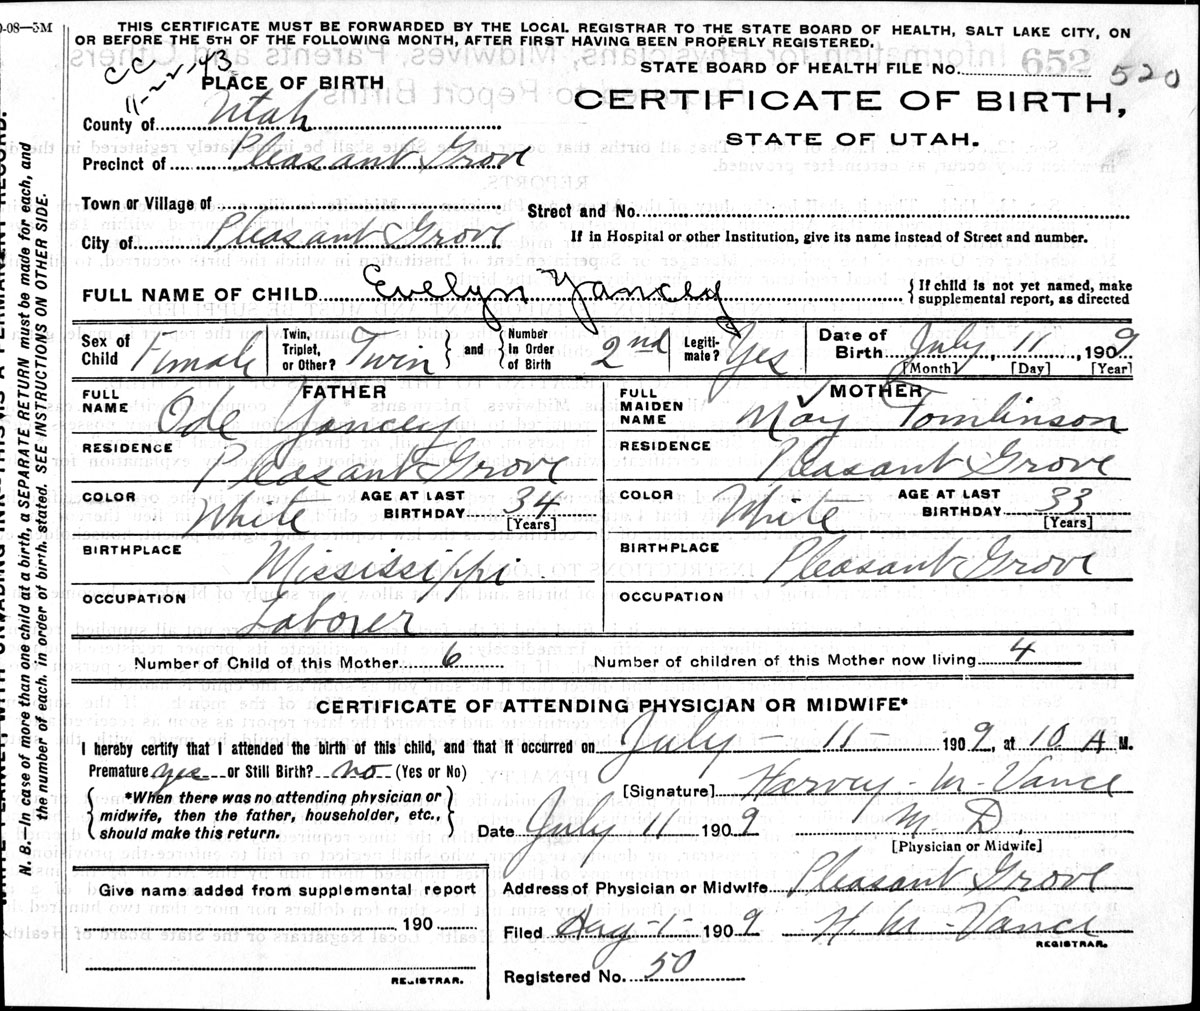 0-08—5M
THIS CERTIFICATE MUST BE FORWARDED BY THE LOCAL REGISTRAR TO THE STATE BOARD OF HEALTH, SALT LAKE CITY, ON
OR BEFORE THE 5TH OF THE FOLLOWING MONTH, AFTER FIRST HAVING BEEN PROPERLY REGISTERED.
CC
11-2-43
STATE BOARD OF HEALTH FILE No. 652 520
PLACE OF BIRTH
CERTIFICATE OF BIRTH,
STATE OF UTAH.
County of Utah
Precinct of Pleasant Grove
Town or Village of
Street and No.
City of Pleasant Grove
If in Hospital or other Institution, give its name instead of Street and number.
FULL NAME OF CHILD Evelyn Yancey
{ If child is not yet named, make
supplemental report, as directed
Sex of Child Female Twin, Triplet, or Other? Twin } and { Number In Order of Birth 2nd Legiti- mate? Yes Date of Birth July 11 1909
[Month] [Day] [Year]
FATHER
MOTHER
FULL NAME Ode Yancey
FULL MAIDEN NAME May Tomlinson
RESIDENCE Pleasant Grove
RESIDENCE Pleasant Grove
COLOR White AGE AT LAST BIRTHDAY 34 [Years]
COLOR White AGE AT LAST BIRTHDAY 33 [Years]
BIRTHPLACE Mississippi
BIRTHPLACE Pleasant Grove
OCCUPATION Laborer
OCCUPATION
Number of Child of this Mother 6 Number of children of this Mother now living 4
CERTIFICATE OF ATTENDING PHYSICIAN OR MIDWIFE*
I hereby certify that I attended the birth of this child, and that it occurred on July - 11 - 1909, at 10 A M.
Premature yes or Still Birth? no (Yes or No)
[Signature] Harvey - M - Vance
{ *When there was no attending physician or
midwife, then the father, householder, etc.,
should make this return. }
Date July 11 1909 M. D.
[Physician or Midwife]
Give name added from supplemental report
190
REGISTRAR.
Address of Physician or Midwife Pleasant Grove
Filed Aug - 1 - 1909 H. M - Vance
REGISTRAR.
Registered No. 50
N. B.—In case of more than one child at a birth, a SEPARATE RETURN must be made for each, and
the number of each, in order of birth, stated. SEE INSTRUCTIONS ON OTHER SIDE.